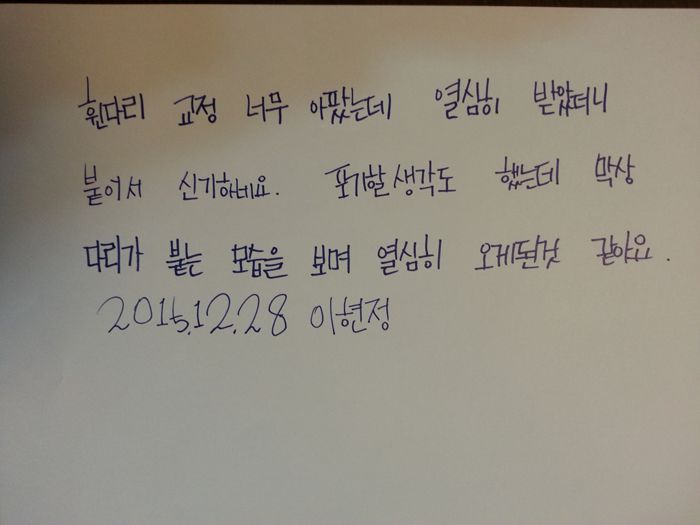 휜다리 교정 너무 아팠는데 열심히 받았더니
붙어서 신기하네요. 포기할 생각도 했는데 막상
다리가 붙는 모습을 보며 열심히 오게된것 같아요.
2015.12.28 이현정